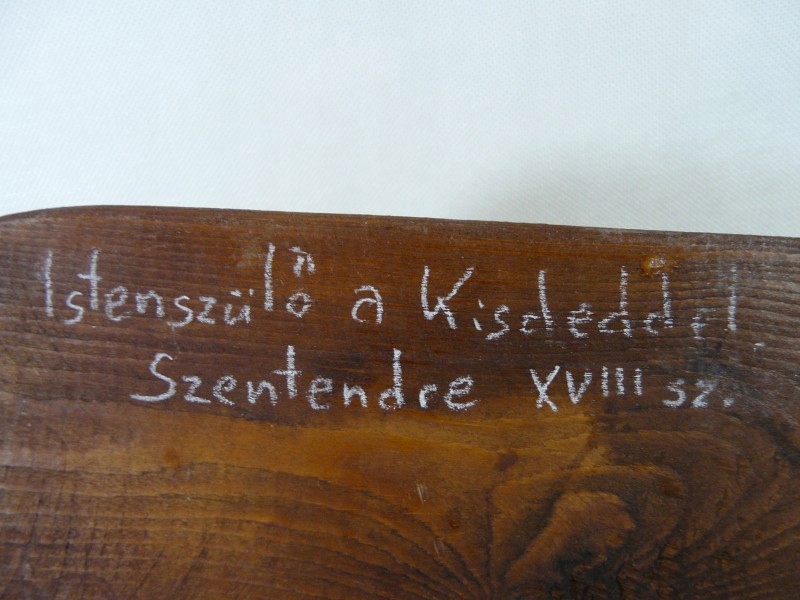 Istenszülő a Kisdeddel.
Szentendre XVIII sz.